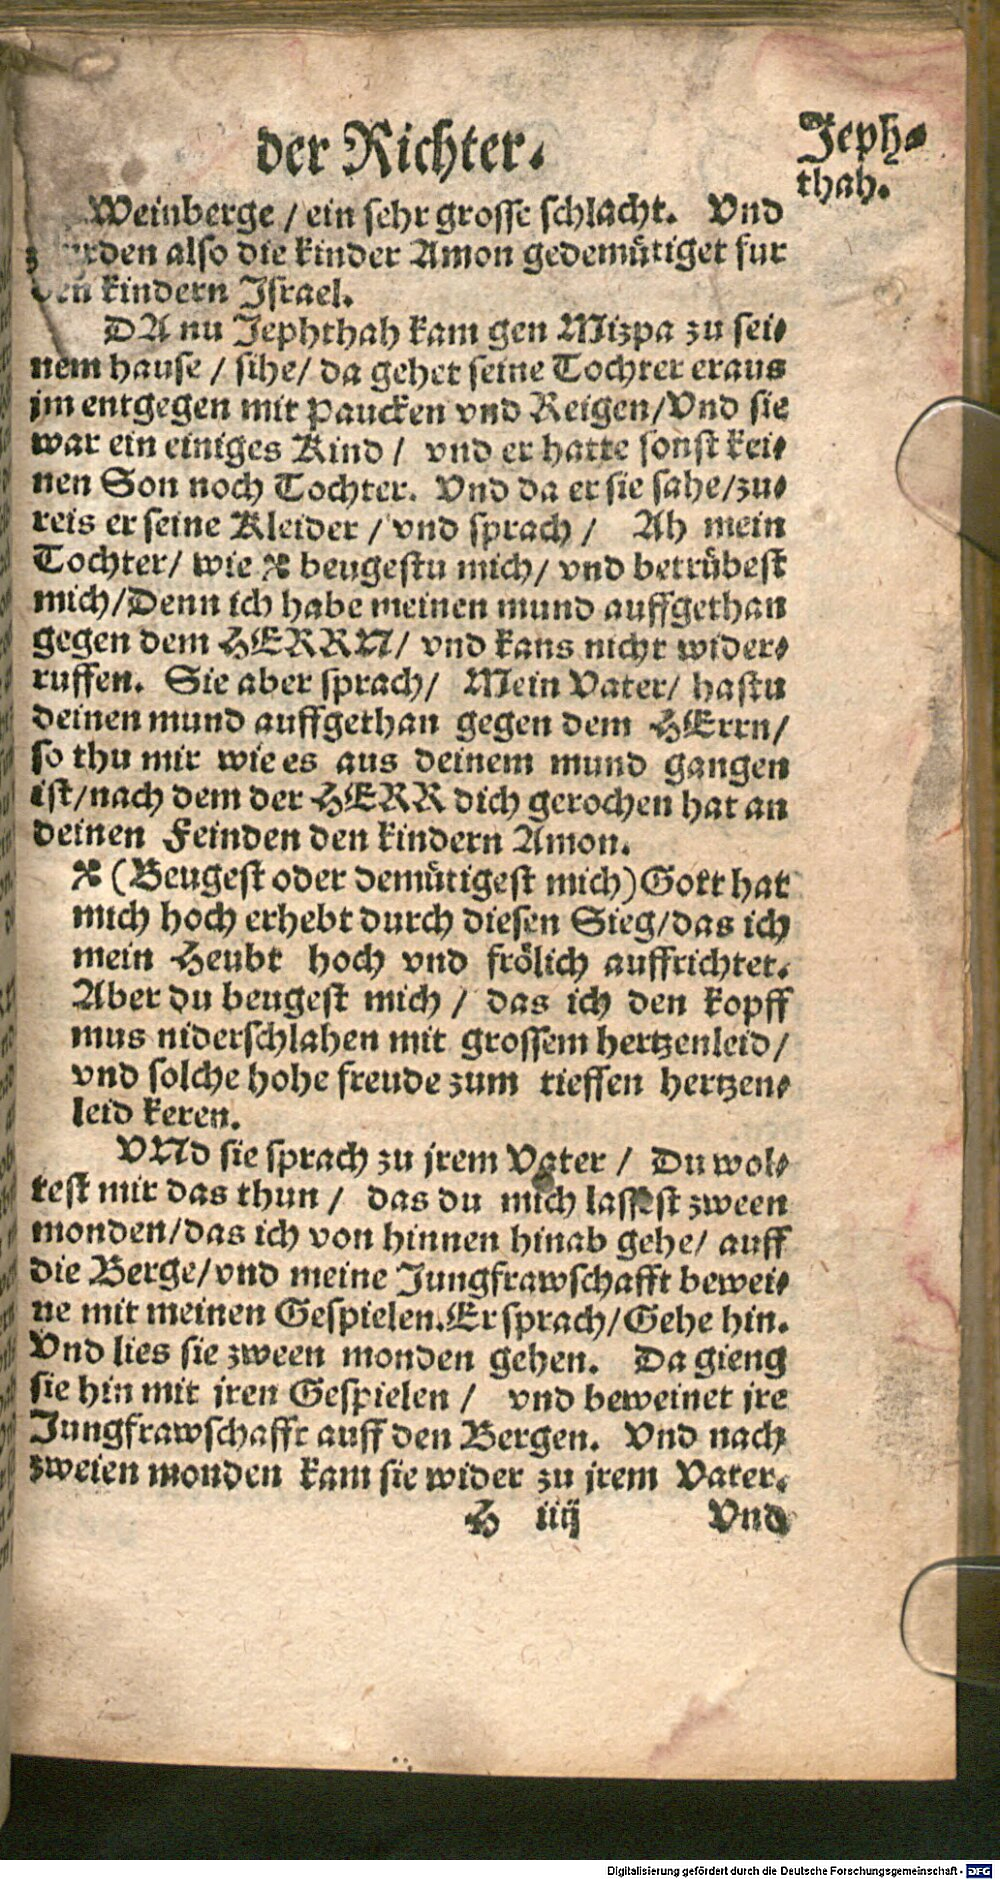 der Richter.
Jeph-
thah.
Weinberge / ein sehr grosse schlacht. Vnd
also die kinder Amon gedemütiget fur
kindern Jsrael.
DA nu Jephthah kam gen Mizpa zu sei-
nem hause / sihe / da gehet seine Tochter eraus
jm entgegen mit Paucken vnd Reigen / Vnd sie
war ein einiges Kind / vnd er hatte sonst kei-
nen Son noch Tochter. Vnd da er sie sahe / zu-
reis er seine Kleider / vnd sprach / Ah mein
Tochter / wie ※ beugestu mich / vnd betrübest
mich / Denn ich habe meinen mund auffgethan
gegen dem HERRN / vnd kans nicht wider-
ruffen. Sie aber sprach / Mein Vater / hastu
deinen mund auffgethan gegen dem HErrn /
so thu mir wie es aus deinem mund gangen
ist / nach dem der HERR dich gerochen hat an
deinen Feinden den kindern Amon.
※ (Beugest oder demütigest mich) Gott hat
mich hoch erhebt durch diesen Sieg / das ich
mein Heubt hoch vnd frölich auffrichtet.
Aber du beugest mich / das ich den kopff
mus niderschlahen mit grossem hertzenleid /
vnd solche hohe freude zum tieffen hertzen-
leid keren.
VNd sie sprach zu jrem Vater / Du wol-
test mir das thun / das du mich lassest zween
monden / das ich von hinnen hinab gehe / auff
die Berge / vnd meine Jungfrawschafft bewei-
ne mit meinen Gespielen. Er sprach / Gehe hin.
Vnd lies sie zween monden gehen. Da gieng
sie hin mit jren Gespielen / vnd beweinet jre
Jungfrawschafft auff den Bergen. Vnd nach
zweien monden kam sie wider zu jrem Vater.
H iiij Vnd
Digitalisierung gefördert durch die Deutsche Forschungsgemeinschaft - DFG